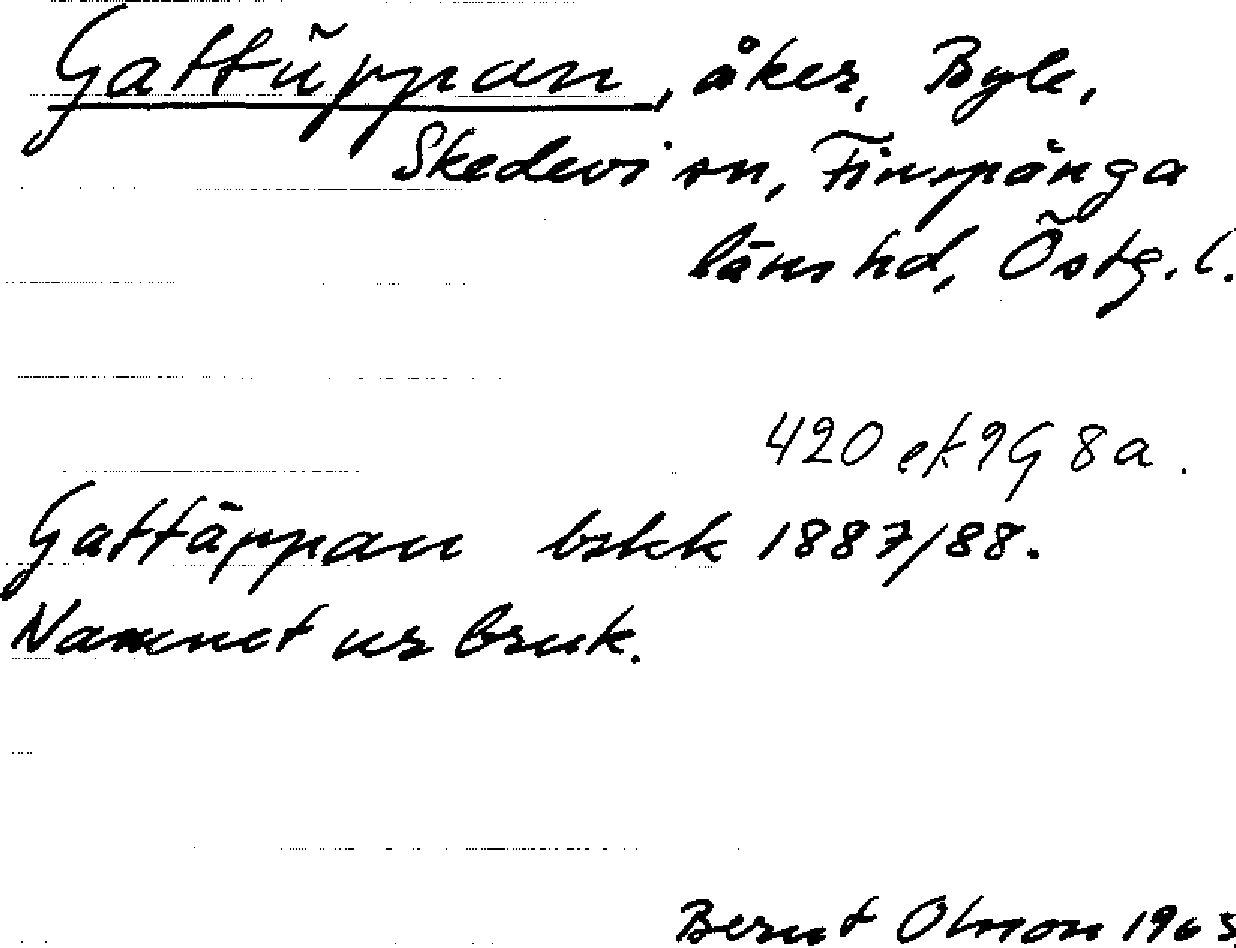 Gattäppan, åker, Byle,
Skedevi sn, Finspånga
läns hd, Östg. l.
420 ek 9G 8a.
Gattäppan bskk 1887/88.
Namnet ur bruk.
Bernt Olsson 1963